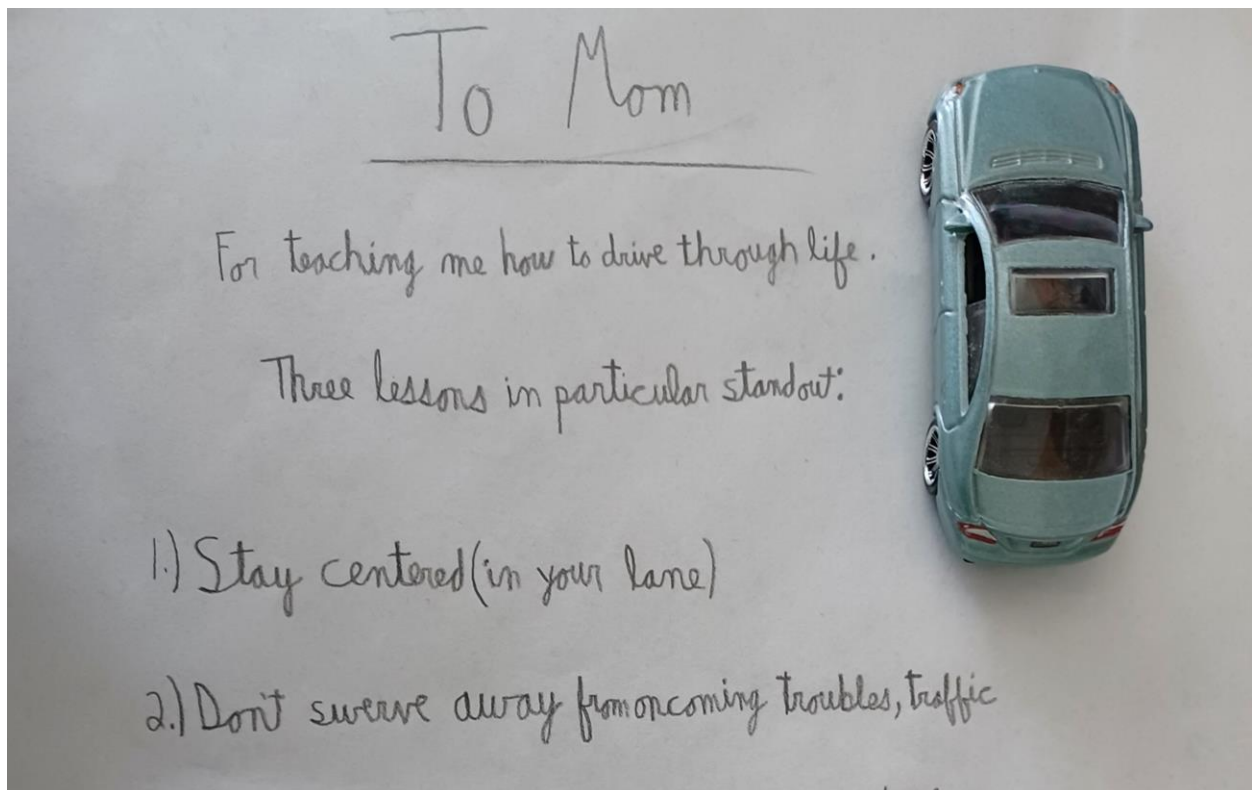 To Mom
For teaching me how to drive through life.
Three lessons in particular standout:
1.) Stay centered (in your lane)
2.) Don't swerve away from oncoming troubles, traffic